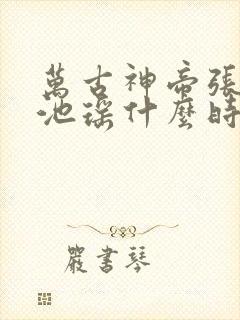 萬古神帝張
池瑤什麼時
嚴書琴